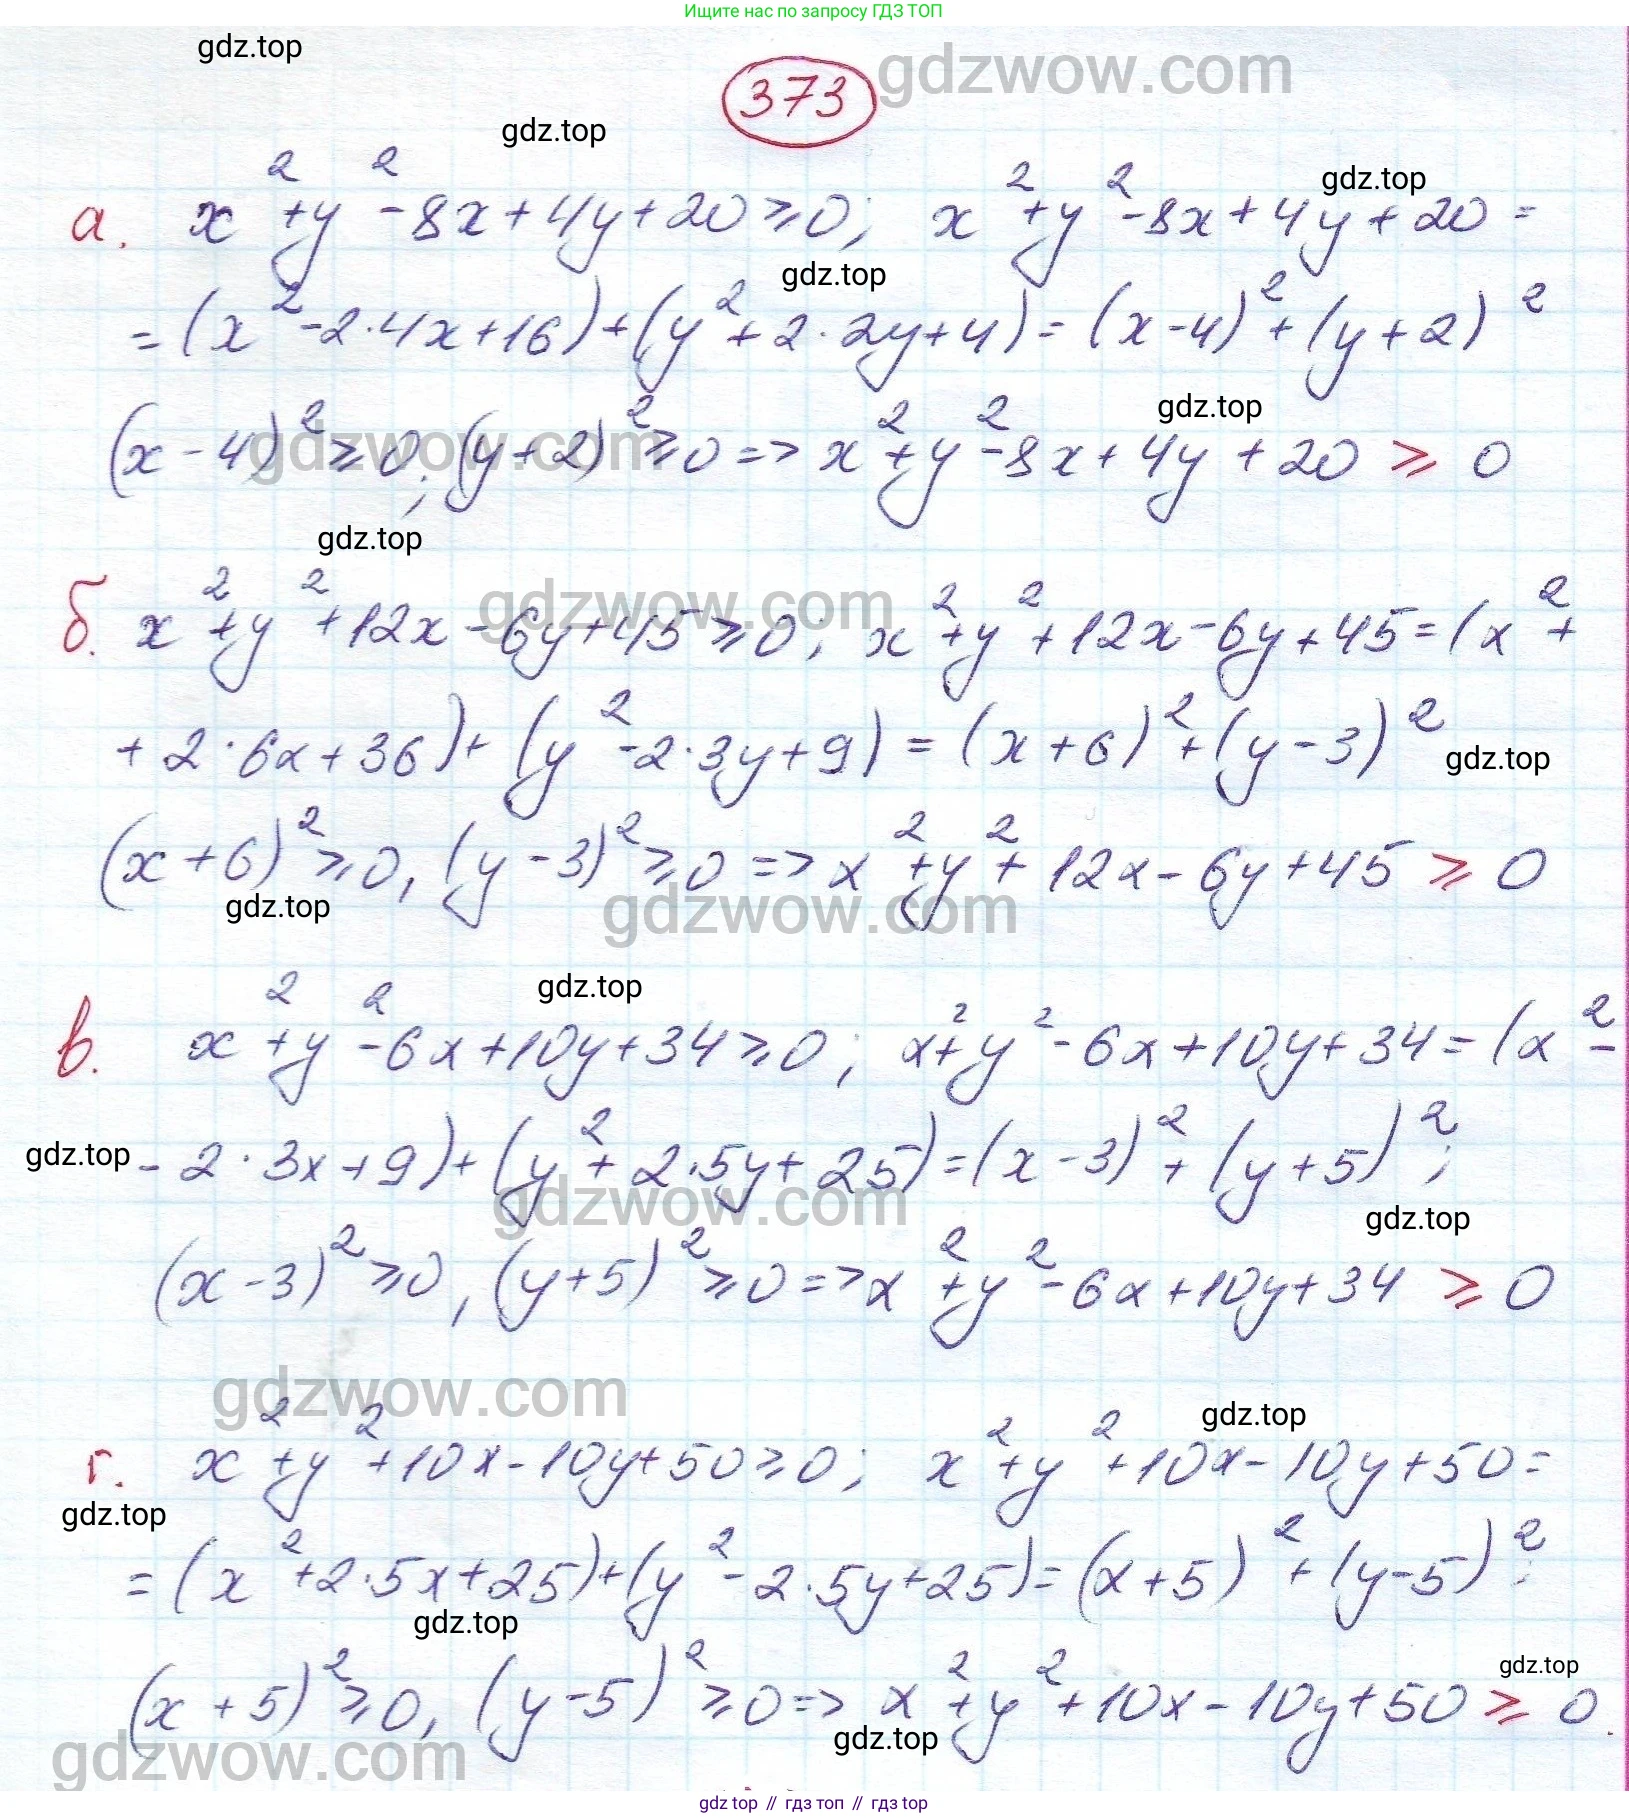 Ищите нас по запросу ГДЗ ТОП
gdz.top
gdzwow.com
373
gdz.top
gdz.top
а. x²+y²-8x+4y+20≥0; x²+y²-8x+4y+20=
gdz.top
=(x²-2·4x+16)+(y²+2·2y+4)=(x-4)²+(y+2)²
gdz.top
gdzwow.com
(x-4)²≥0; (y+2)²≥0=>x²+y²-8x+4y+20≥0
gdz.top
gdzwow.com
б. x²+y²+12x-6y+45≥0; x²+y²+12x-6y+45=(x²+
+2·6x+36)+(y²-2·3y+9)=(x+6)²+(y-3)²
gdz.top
(x+6)²≥0, (y-3)²≥0=>x²+y²+12x-6y+45≥0
gdz.top
gdzwow.com
gdz.top
в. x²+y²-6x+10y+34≥0; x²+y²-6x+10y+34=(x²-
gdz.top
-2·3x+9)+(y²+2·5y+25)=(x-3)²+(y+5)²;
gdzwow.com
gdz.top
(x-3)²≥0, (y+5)²≥0=>x²+y²-6x+10y+34≥0
gdzwow.com
gdz.top
г. x²+y²+10x-10y+50≥0; x²+y²+10x-10y+50=
gdz.top
=(x²+2·5x+25)+(y²-2·5y+25)=(x+5)²+(y-5)²;
gdz.top
gdz.top
(x+5)²≥0, (y-5)²≥0=>x²+y²+10x-10y+50≥0.
gdz.top
gdzwow.com
gdz top // гдз топ // гдз top